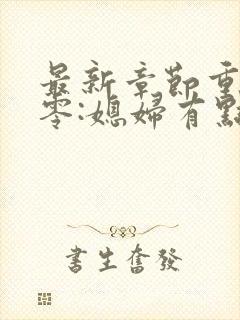 最新章節重
零:媳婦有點
書生奮發